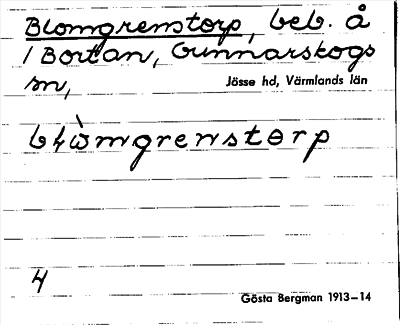 Blomgrenstorp, beb. å
/ Bortan, Gunnarskogs
sn,
Jösse hd, Värmlands län
blo̊̀mgrenstɵrp
4
Gösta Bergman 1913–14